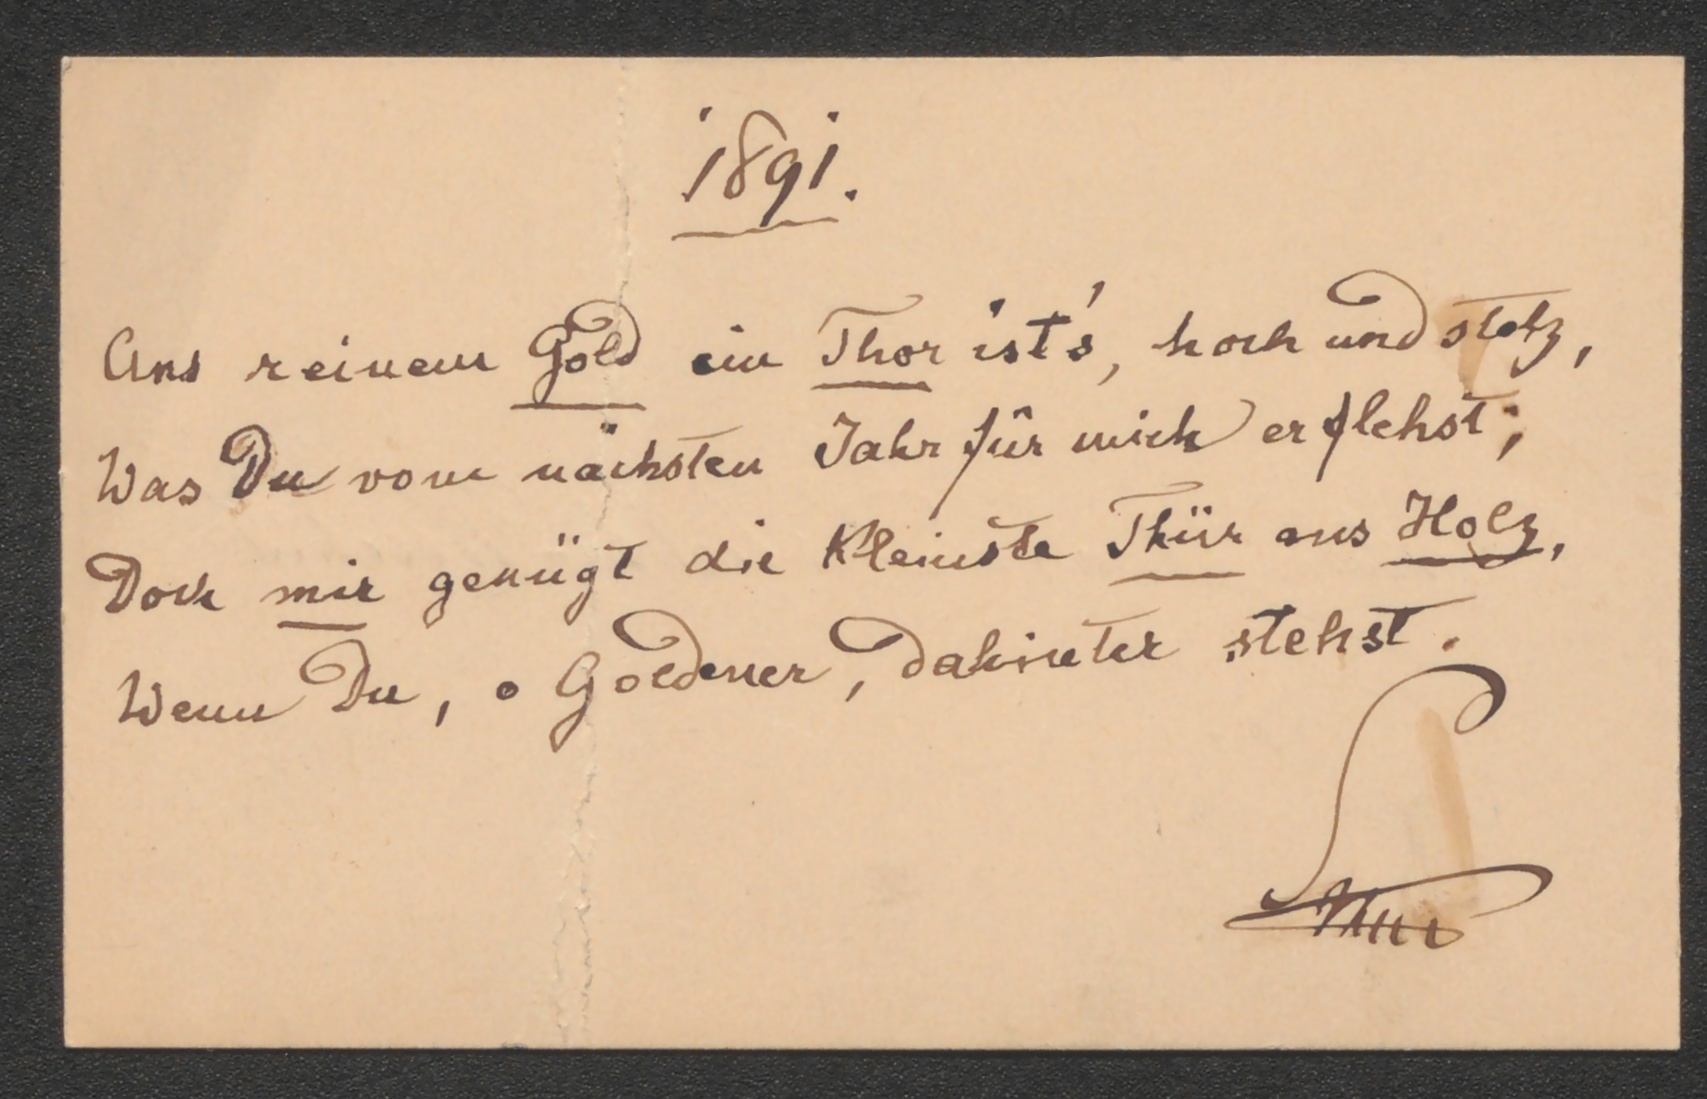 1891.
Aus reinem Gold ein Thor ist's, hoch und stolz,
Was Du vom nächsten Jahr für mich erflehst;
Doch mir genügt die kleinste Thür aus Holz,
Wenn Du, o Goldener, dahinter stehst.